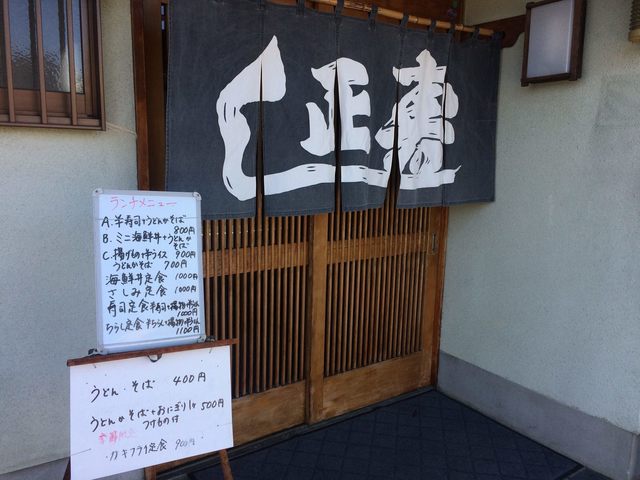 正
ランチメニュー
A.半寿司+うどんかそば
800円
B.ミニ海鮮丼+うどんか
そば
C.揚げもの+半ライス 900円
うどんかそば 700円
海鮮丼定食 1000円
さしみ定食 1000円
寿司定食
1000円
ちらし定食
1100円
うどん・そば 400円
うどんかそば+おにぎり1ヶ 500円
つけもの付
・カキフライ定食 900円